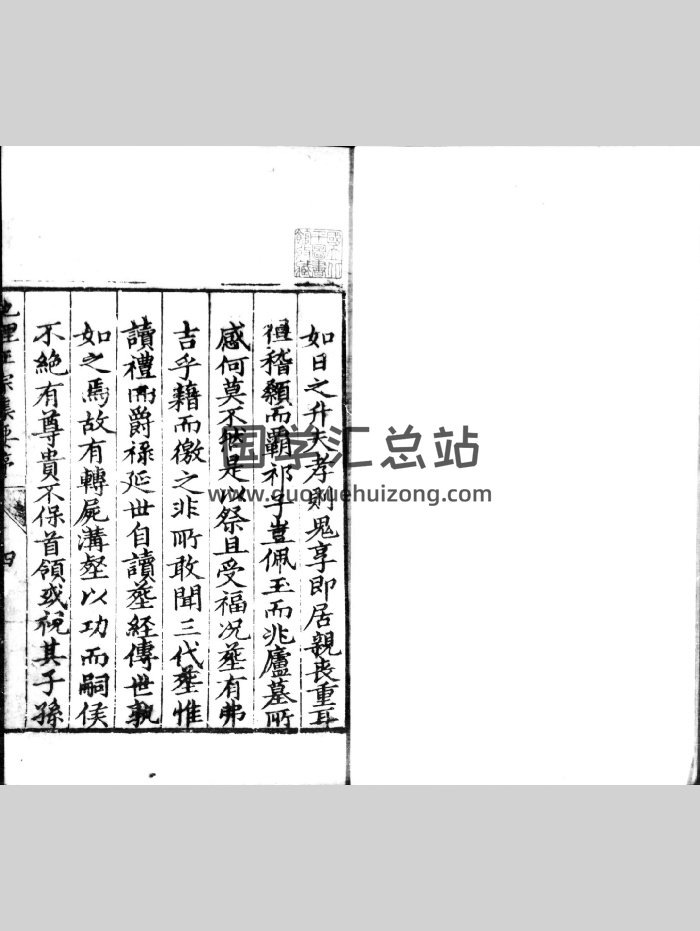 如日之升大孝則鬼享即居親喪重耳
稽顙而霸祁子豈佩玉而兆廬墓所
感何莫不然是以祭且受福况塟有弗
吉乎藉而徼之非所敢聞三代塟惟
讀禮而爵祿延世自讀塟經傳世孰
如之焉故有轉屍溝壑以功而嗣侯
不絶有尊貴不保首領或祝其子孫
地理正宗集要序
四
国学汇总站
www.guoxuehuizong.com